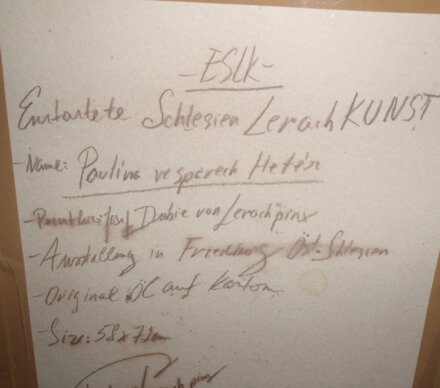 -ESLK-
Entartete Schlesien Lerach KUNST
-Name: Paulina vesperech Hetén
Dabie von Lerach pinx
-Austallung in Friedburg Öst. Schlesien
-Original Öl auf Karton
-Size: 58x72cm
pinx